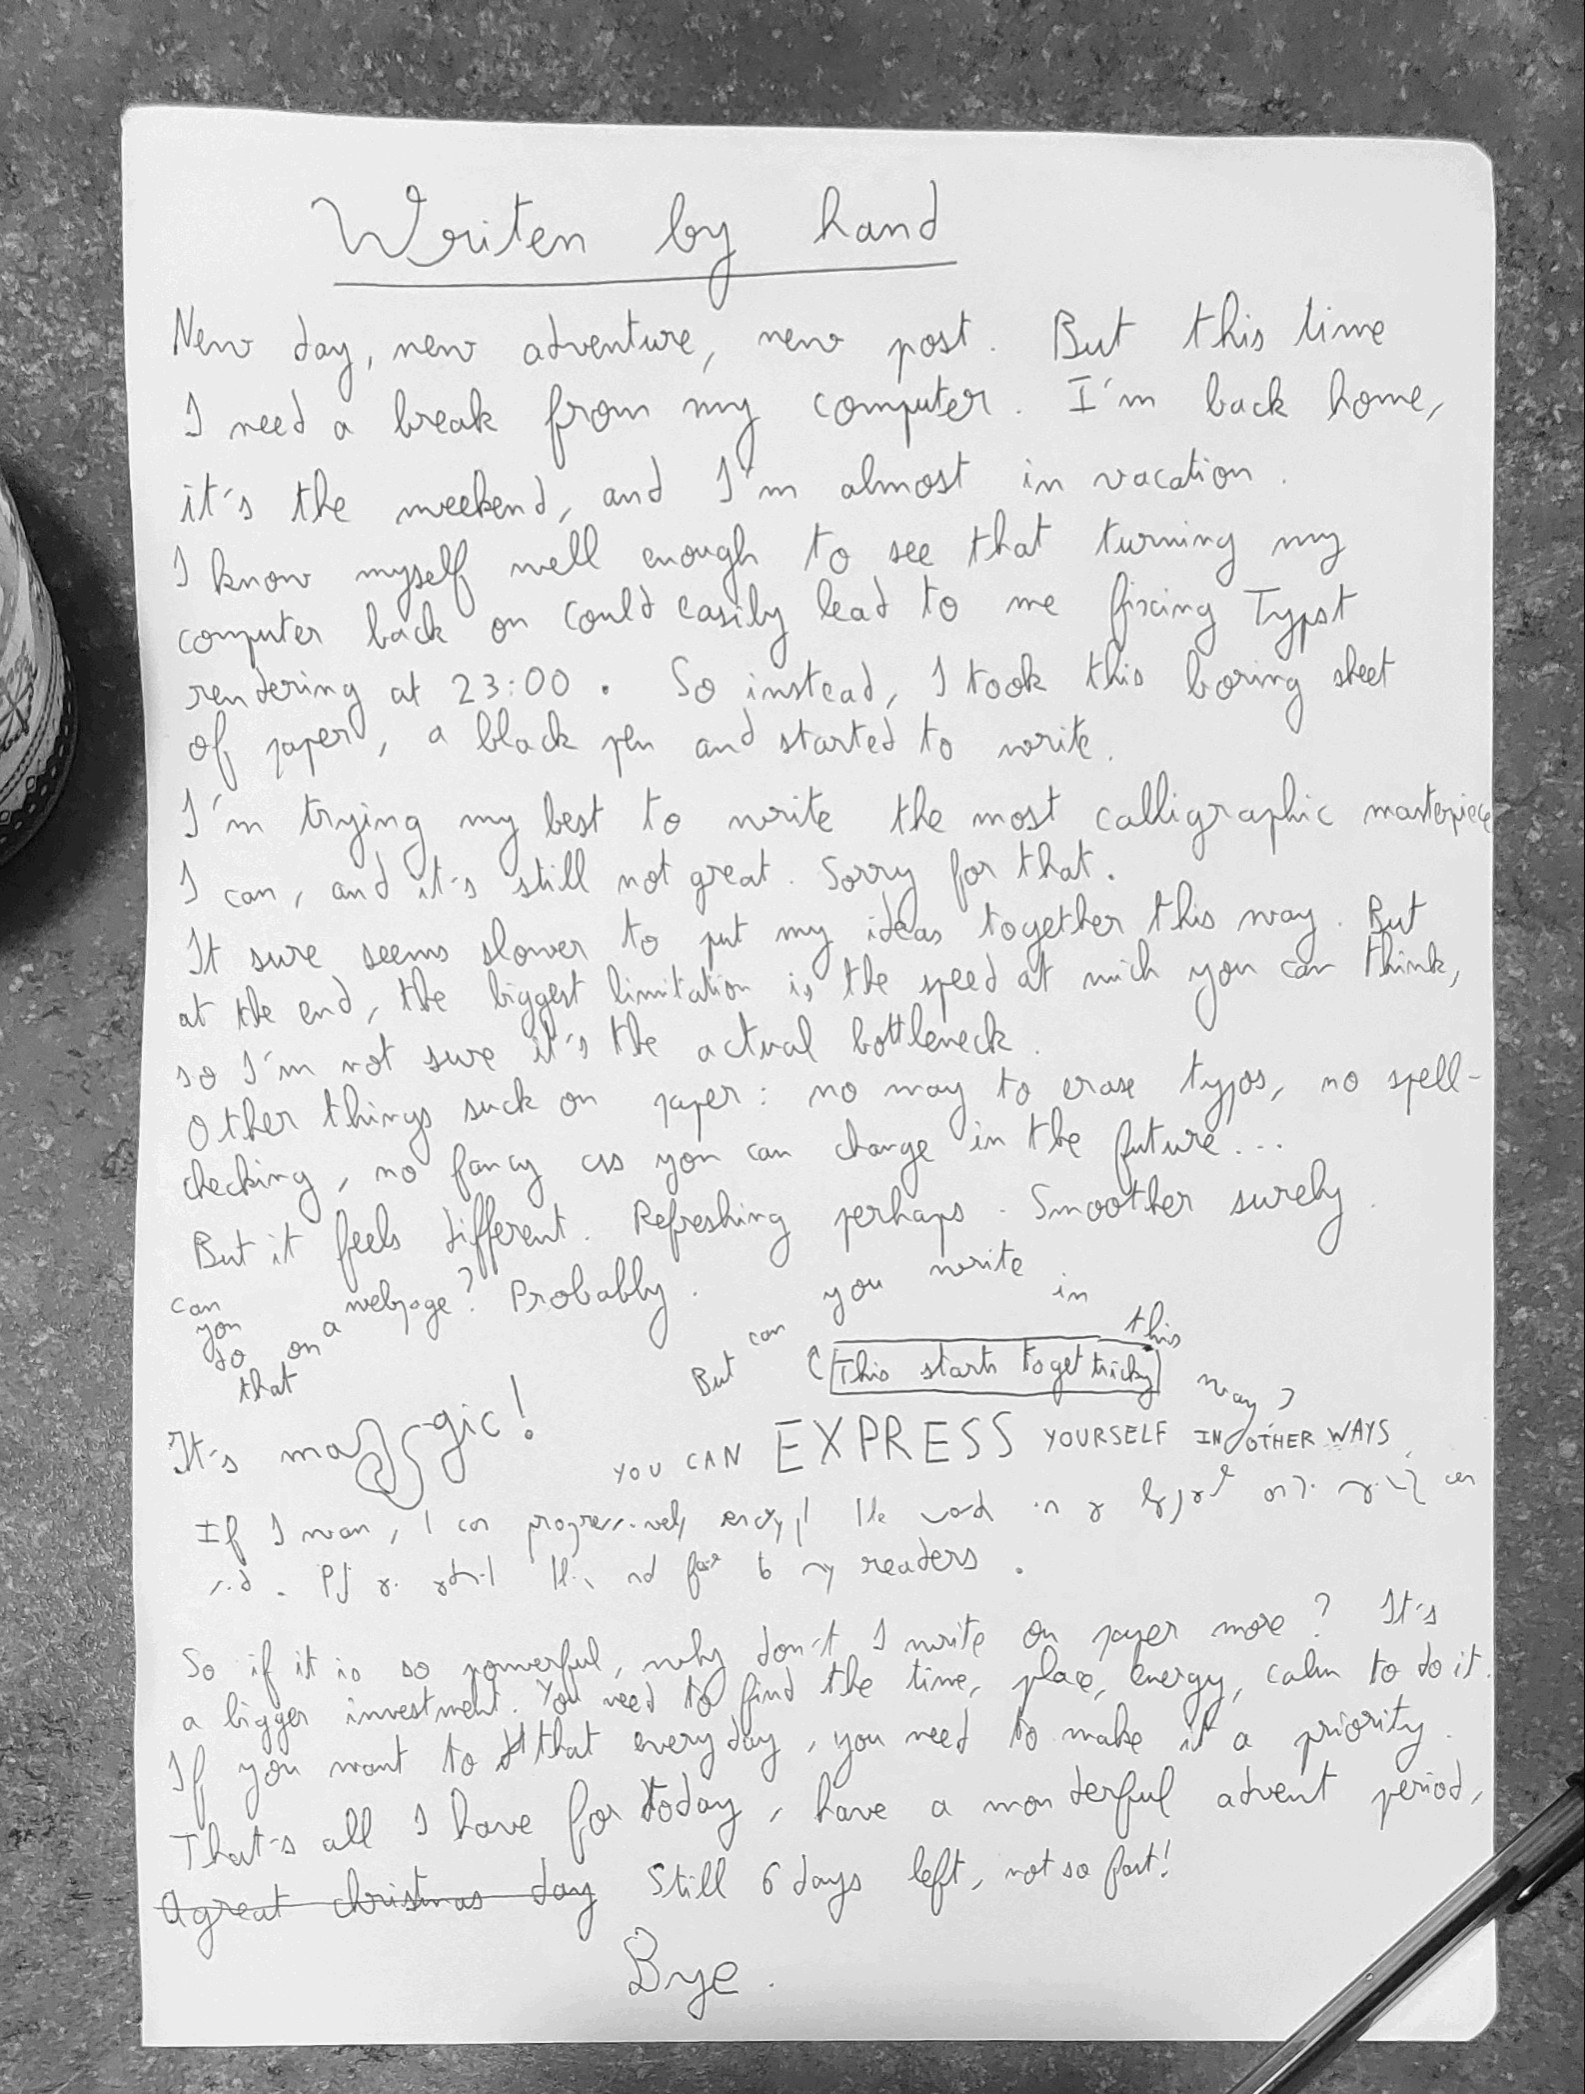 Writen by hand
New day, new adventure, new post. But this time
I need a break from my computer. I'm back home,
it's the weekend, and I'm almost in vacation.
I know myself well enough to see that turning my
computer back on could easily lead to me fixing Typst
rendering at 23:00. So instead, I took this boring sheet
of paper, a black pen and started to write.
I'm trying my best to write the most calligraphic masterpiece
I can, and it's still not great. Sorry for that.
It sure seems slower to put my ideas together this way. But
at the end, the biggest limitation is the speed at wich you can think,
so I'm not sure it's the actual bottleneck.
Other things suck on paper: no way to erase typos, no spell-
checking, no fancy css you can change in the future...
But it feels different. Refreshing perhaps. Smoother surely.
can you do that on a webpage? Probably.
But can you write in this way?
(This starts to get tricky)
It's magic!
YOU CAN EXPRESS YOURSELF IN OTHER WAYS.
If I mean, I can progressively encrypt the word in a
not fair to my readers.
So if it is so powerful, why don't I write on paper more? It's
a bigger investment. You need to find the time, place, energy, calm to do it.
If you want to that everyday, you need to make it a priority.
That's all I have for today, have a wonderful advent period,
a great christmas day Still 6 days left, not so fast!
Bye.